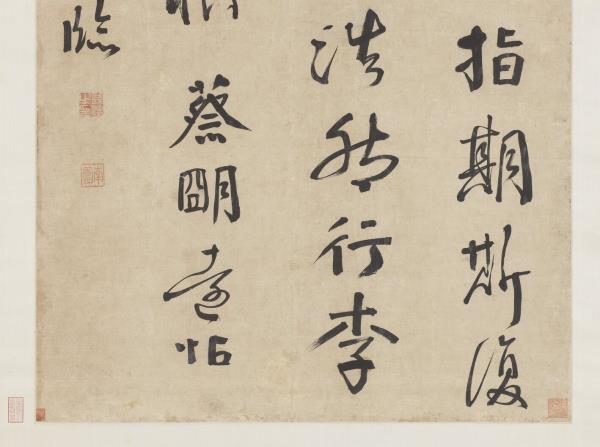 指期斯復
浩然行李
蔡明遠帖
臨